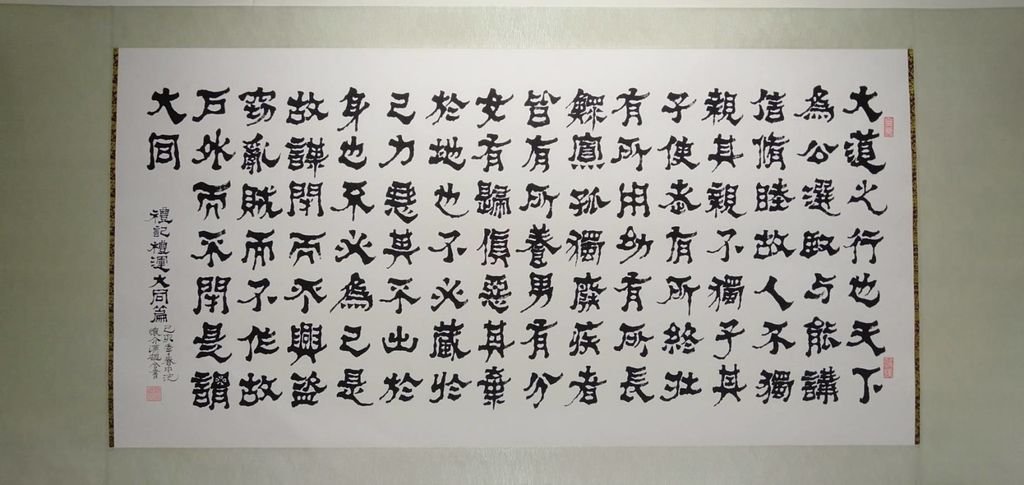 大道之行也天下
為公選臤与能講
信脩睦故人不獨
親其親不獨子其
子使老有所終壯
有所用幼有所長
鰥寡孤獨廢疾者
皆有所養男有分
女有歸貨惡其棄
於地也不必藏於
己力惡其不出於
身也不必為己是
故謀閉而不興盜
窃亂賊而不作故
戶外而不閉是謂
大同
禮記禮運大同篇